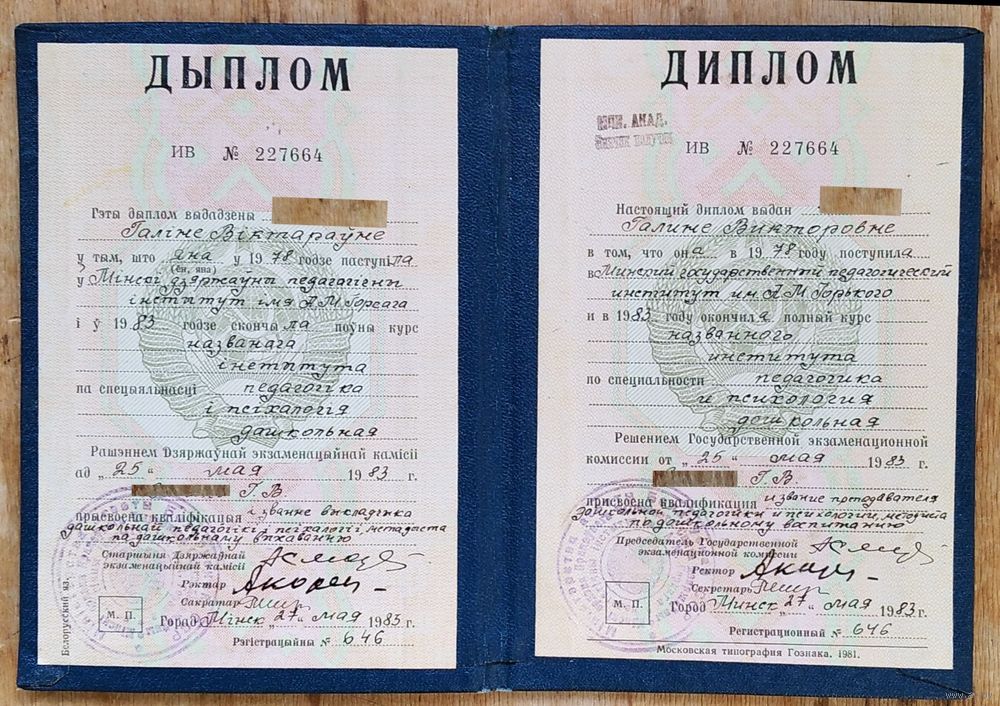 ДЫПЛОМ
ИВ № 227664
Гэты дыплом выдадзены
Галіне Віктараўне
у тым, што яна у 1978 годзе паступіла
(ён, яна)
ў Мінскі дзяржаўны педагагічны
інстытут імя А.М.Горкага
і ў 1983 годзе скончыла поўны курс
названага
інстытута
па спецыяльнасці педагогіка
і псіхалогія
дашкольная
Рашэннем Дзяржаўнай экзаменацыйнай камісіі
ад „25“ мая 1983 г.
Г.В.
прысвоена кваліфікацыя і званне выкладчыка
дашкольнай педагогікі і псіхалогіі, метадыста
па дашкольнаму выхаванню
Старшыня Дзяржаўнай
экзаменацыйнай камісіі
Рэктар
Сакратар
М. П.
Город Мінск „27“ мая 1983 г.
Рэгістрацыйны № 646
Белорусский яз.
ДИПЛОМ
ИВ № 227664
Настоящий диплом выдан
Галине Викторовне
в том, что она в 1978 году поступила
в Минский государственный педагогический
институт им. А.М.Горького
и в 1983 году окончила полный курс
названного
института
по специальности педагогика
и психология
дошкольная
Решением Государственной экзаменационной
комиссии от „25“ мая 1983 г.
Г.В.
присвоена квалификация и звание преподавателя
дошкольной педагогики и психологии, методиста
по дошкольному воспитанию
Председатель Государственной
экзаменационной комиссии
Ректор
Секретарь
М. П.
Город Минск „27“ мая 1983 г.
Регистрационный № 646
Московская типография Гознака. 1981.